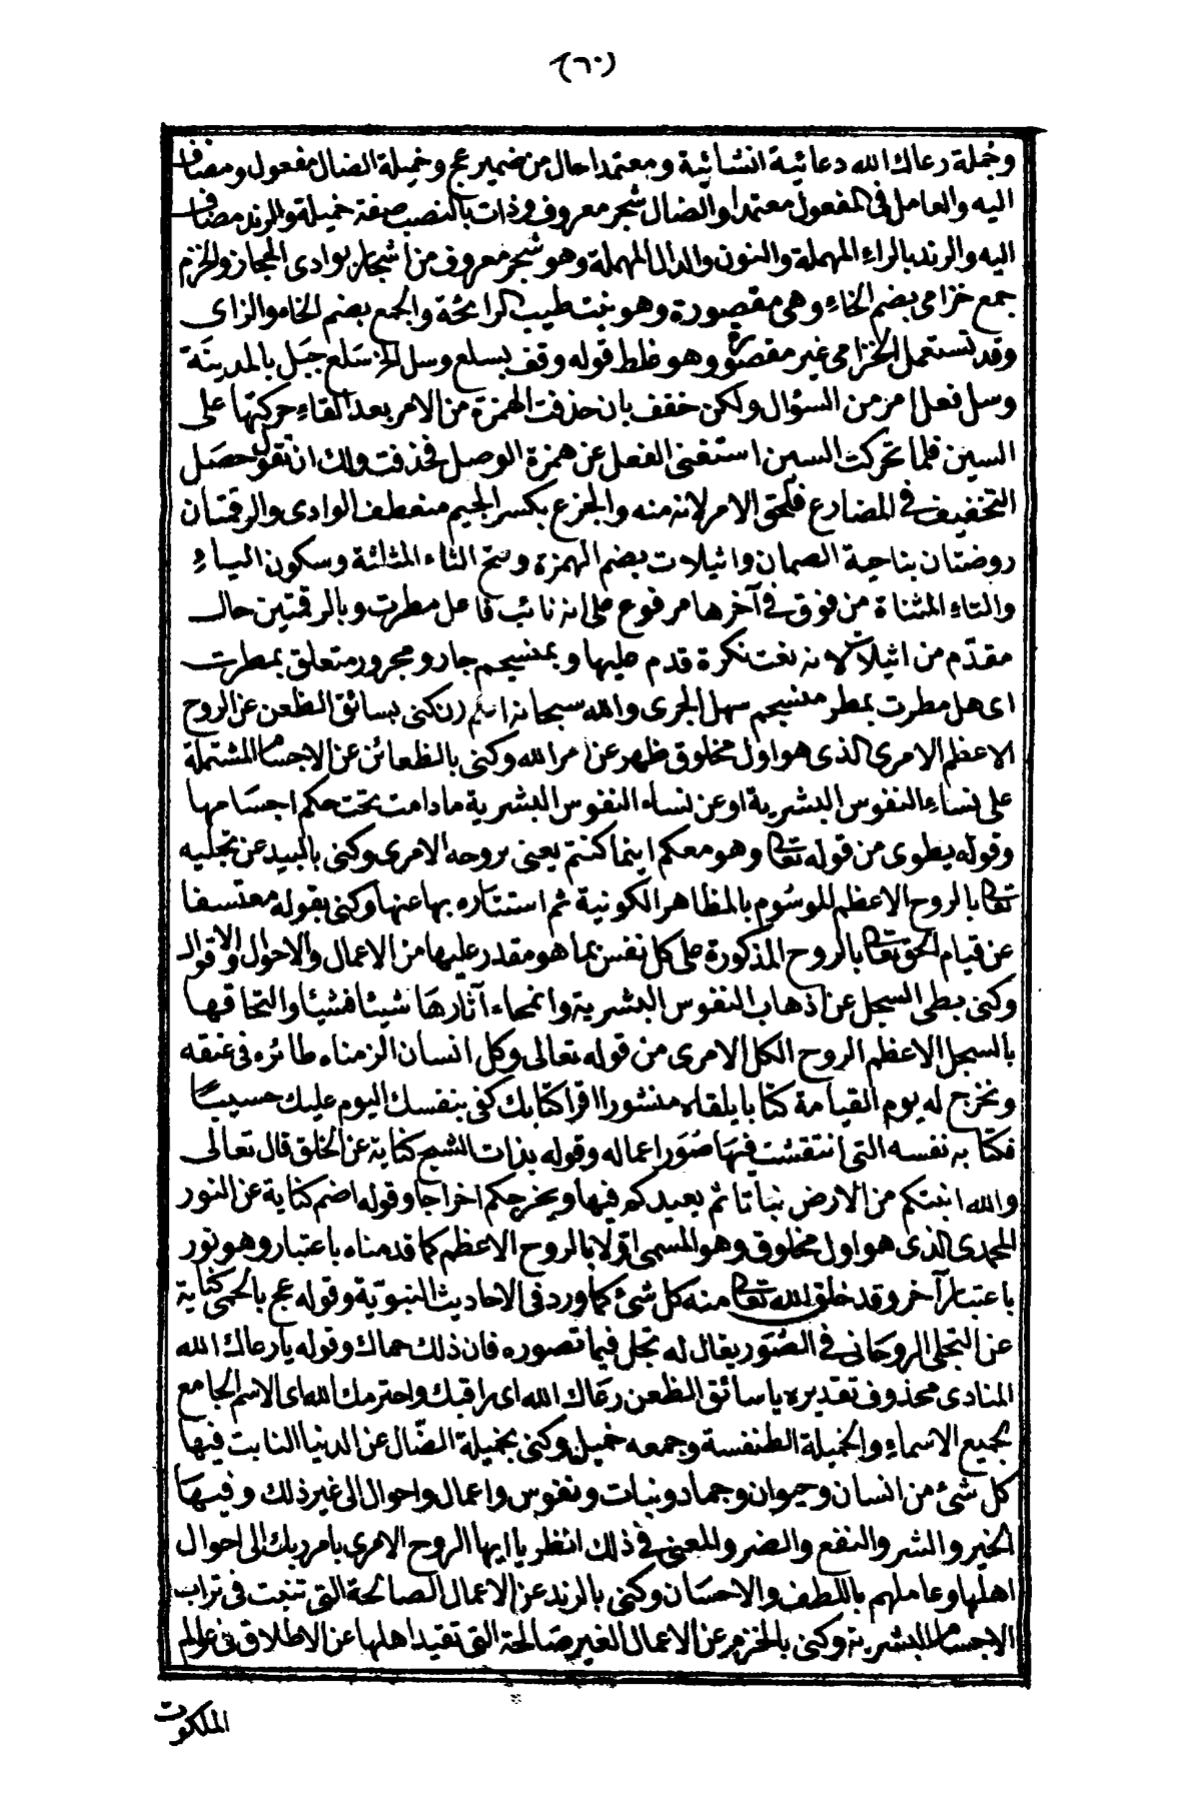 (٦٠)
وجملة رعاك الله دعائية انشائية ومعتمدا حال من ضمير عج وخميلة الضال مفعول ومضاف
اليه والعامل فى المفعول معتمدا والضال شجر معروف وذات بالنصب صفة خميلة والرند مضاف
اليه والرند بالراء المهملة والنون والدال المهملة وهو شجر معروف من اشجار بوادى الحجاز والخزم
جمع خزامى بضم الخاء وهى مقصورة وهو نبت طيب الرائحة والجمع بضم الخاء والزاى
وقد تستعمل الخزامى غير مقصورة وهو غلط قوله وقف بسلع وسل الخ سلع جبل بالمدينة
وسل فعل امر من السؤال ولكن خفف بان حذفت الهمزة من الامر بعد القاء حركتها على
السين فلما تحركت السين استغنى الفعل عن همزة الوصل فحذفت ولك ان تقول حصل
التخفيف فى المضارع فلحق الامر لانه منه والجزع بكسر الجيم منعطف الوادى والرقمتان
روضتان بناحية الصمان واثيلات بضم الهمزة وفتح الثاء المثلثة وسكون الياء
والتاء المثناة من فوق فى آخرها مرفوع على انه نائب فاعل مطرت وبالرقمتين حال
مقدّم من اثيلات لانه نعت نكرة قدم عليها وبمنسجم جار ومجرور متعلق بمطرت
اى هل مطرت بمطر منسجم سهل الجرى والله سبحانه اعلم (ن) كنى بسائق الظعن عن الروح
الاعظم الامرى الذى هو اول مخلوق ظهر عن امر الله وكنى بالظعائن عن الاجسام المشتملة
على نساء النفوس البشرية او عن نساء النفوس البشرية ما دامت تحت حكم اجسامها
وقوله يطوى من قوله تعالى وهو معكم اينما كنتم يعنى بروحه الامرى وكنى بالبيد عن تجليه
تعالى بالروح الاعظم للوسُوم بالمظاهر الكونية ثم استتاره بها عنها وكنى بقوله معتسفا
عن قيام الحق تعالى بالروح المذكورة على كل نفس بما هو مقدر عليها من الاعمال والاحوال والاقوال
وكنى بطى السجل عن اذهاب النفوس البشرية وانمحاء آثارها شيئا فشيئا والتحاقها
بالسجل الاعظم الروح الكل الامرى من قوله تعالى وكل انسان الزمناه طائره فى عنقه
ونخرج له يوم القيامة كتابا يلقاه منشورا اقرا كتابك كفى بنفسك اليوم عليك حسيبًا
فكتابه نفسه التى انتقشت فيها صُوَر اعماله وقوله بذات الشيح كناية عن الخلق قال تعالى
والله انبتكم من الارض نباتا ثم يعيدكم فيها ويخرجكم اخراجا وقوله اضم كناية عن النور
المحمدى الذى هو اول مخلوق وهو المسمى اوّلا بالروح الاعظم كما قدمناه باعتبار وهو نور
باعتبار آخر وقد خلق الله تعالى منه كل شئ كما ورد فى الاحاديث النبويّة وقوله عج بالحمى كناية
عن التجلى الروحانى فى الصُوَر يقال له تجلى فيما تصوره فان ذلك حماك وقوله يا رعاك الله
المنادى محذوف تقديره يا سائق الظعن رعاك الله اى راقبك واحترمك الله اى الاسم الجامع
لجميع الاسماء والخميلة الطنفسة وجمعه خميل وكنى بخميلة الضّال عن الدنيا النابت فيها
كل شئ من انسان وحيوان وجماد ونبات ونفوس واعمال واحوال الى غير ذلك وفيها
الخير والشر والنفع والضر والمعنى فى ذلك انظر يا ايها الروح الامرى بامر ربك الى احوال
اهلها وعاملهم باللطف والاحسان وكنى بالرند عن الاعمال الصالحة التى تنبت فى تراب
الاجسام البشرية وكنى بالخزم عن الاعمال الغير صالحة التى تقيد اهلها عن الاطلاق فى عوالم
الملكوت